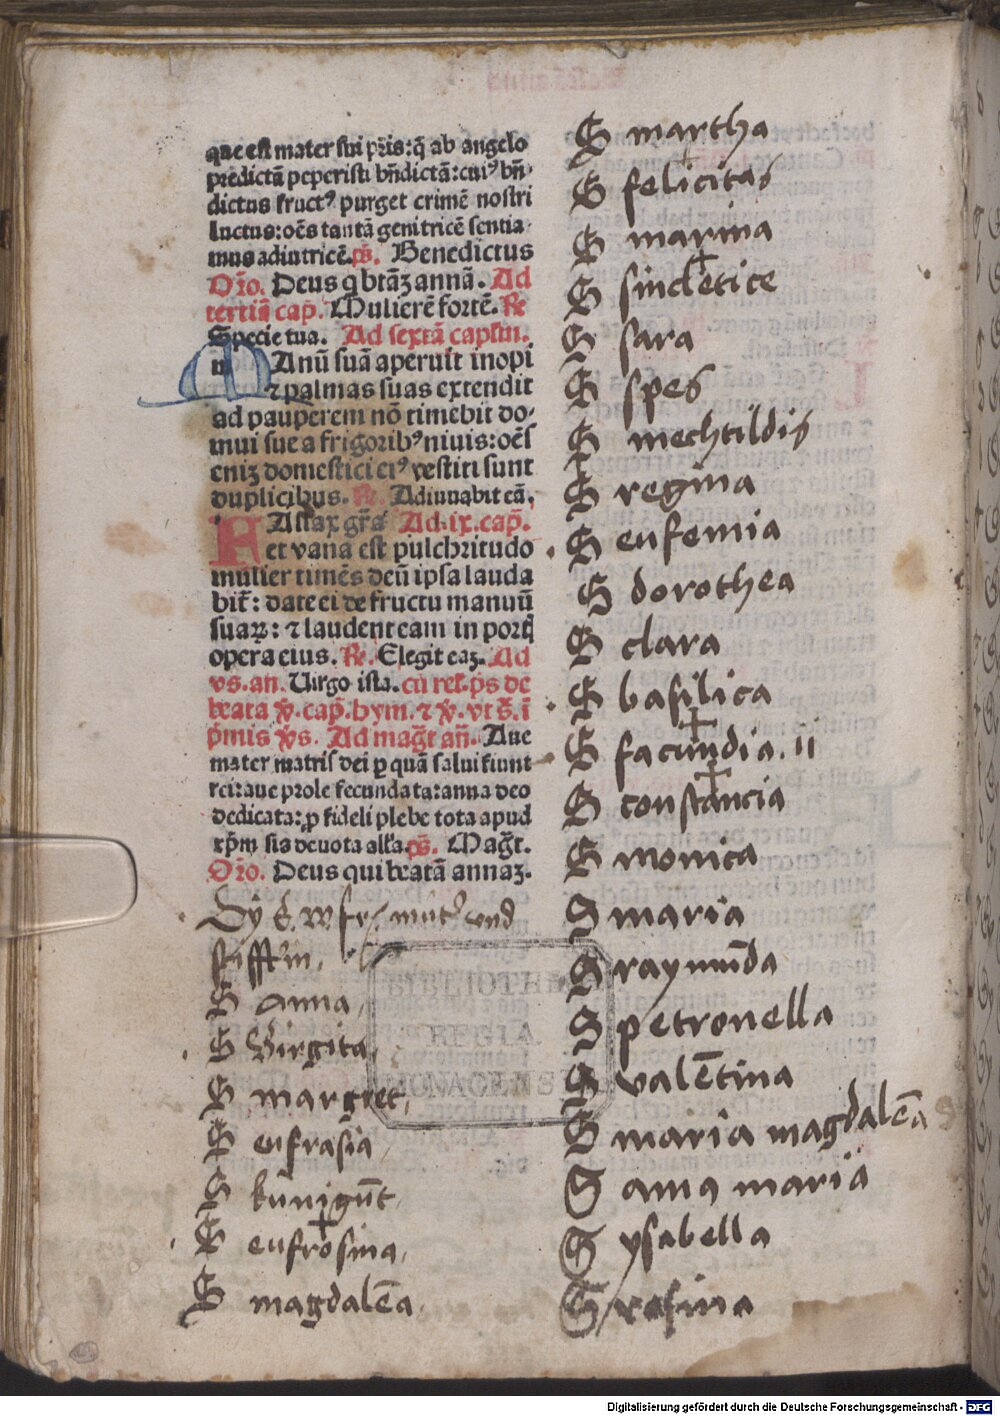 que est mater sui p̄ris: q̄ ab angelo
predictā peperisti bn̄dictā: cuiꝰ bn̄-
dictus fructꝰ purget crimē nostri
luctus: oēs tantā genitricē sentia-
mus adiutricē. ps̄. Benedictus
Or̄o. Deus q btāꝫ annā. Ad
tertiā cap̄. Mulierē fortē. ℞
Specie tua. Ad sextā caplm̄.
MAnū suā aperuit inopi
⁊ palmas suas extendit
ad pauperem nō timebit do-
mui sue a frigoribꝰ niuis: oēs
eniꝫ domestici eiꝰ vestiti sunt
duplicibus. ℞. Adiuuabit eā.
FAllax gr̄a Ad .ix. cap̄.
et vana est pulchritudo
mulier timēs deū ipsa lauda
bit̄: date ei de fructu manuū
suaꝝ: ⁊ laudent eam in portꝭ
opera eius. ℞. Elegit eaꝫ. Ad
vs. an̄. Uirgo ista. cū rel. ps̄ de
beata v̄. cap̄. hym. ⁊ v̄. vt s̄. ī
p̄mis v̄s. Ad maḡt an̄. Aue
mater matris dei ꝑ quā salui fiunt
rei: aue prole fecundata: anna deo
dedicata: ꝓ fideli plebe tota apud
xp̄m sis deuota all'a. ps̄. Maḡt.
Or̄o. Deus qui beatā annaꝫ.
Dy E. W fr. muter und
stifftin.
S anna
S Birgita
S margret
S eufrasia
S kūnigūt
S eufrosina
S magdalēa
S martha
S felicitas
S marina
S sincletice
S sara
S spes
S mechtildis
S regina
S eufemia
S dorothea
S clara
S basilica
S facundia. II
S constancia
S monica
S maria
S raymūda
S petronella
S valētina
S maria magdalēa
S anna maria
S ysabella
S rosina
BIBLIOTHECA
REGIA
MONACENSIS
Digitalisierung gefördert durch die Deutsche Forschungsgemeinschaft - DFG